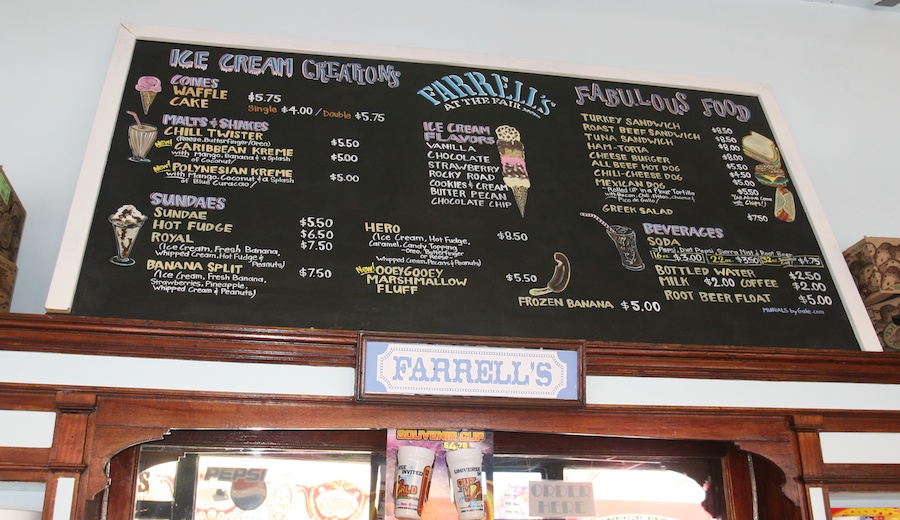 ICE CREAM CREATIONS
CONES
WAFFLE $5.75
CAKE Single $4.00 / Double $5.75
MALTS & SHAKES
CHILL TWISTER $5.50
(Reese, Butterfinger/Oreo)
New! CARIBBEAN KREME $5.00
with Mango, Banana & a Splash
of Coconut
New! POLYNESIAN KREME $5.00
with Mango, Coconut & a Splash
of Blue Curacao
SUNDAES
SUNDAE $5.50
HOT FUDGE $6.50
ROYAL $7.50
(Ice Cream, Fresh Banana,
Whipped Cream, Hot Fudge &
Peanuts)
BANANA SPLIT $7.50
(Ice Cream, Fresh Banana,
Strawberries, Pineapple,
Whipped Cream & Peanuts)
FARRELL'S
AT THE FAIR
ICE CREAM
FLAVORS
VANILLA
CHOCOLATE
STRAWBERRY
ROCKY ROAD
COOKIES & CREAM
BUTTER PECAN
CHOCOLATE CHIP
HERO $8.50
(Ice Cream, Hot Fudge,
Caramel, Candy Topping
-Oreo, Butterfinger
or Reese-
Whipped Cream, Pecans & Peanuts)
New! OOEYGOOEY $5.50
MARSHMALLOW
FLUFF
FROZEN BANANA $5.00
FABULOUS FOOD
TURKEY SANDWICH $8.50
ROAST BEEF SANDWICH $8.50
TUNA SANDWICH $8.00
HAM-TORTA $8.00
CHEESE BURGER $5.50
ALL BEEF HOT DOG $4.50
CHILI-CHEESE DOG $5.00
MEXICAN DOG $5.50
"Rolled UP in a Flour Tortilla
with Bacon, Chili, Fritos, Cheese &
Pico de Gallo)
(All Above Come
w/ Chips!)
GREEK SALAD $7.50
BEVERAGES
SODA
-Pepsi, Diet Pepsi, Sierra Mist & Root Beer
16oz $3.00 22oz $3.50 32oz $4.75
BOTTLED WATER $2.50
MILK $2.00 COFFEE $2.00
ROOT BEER FLOAT $5.00
FARRELL'S
SOUVENIR CUP
$4.75
PEPSI
ORDER
HERE